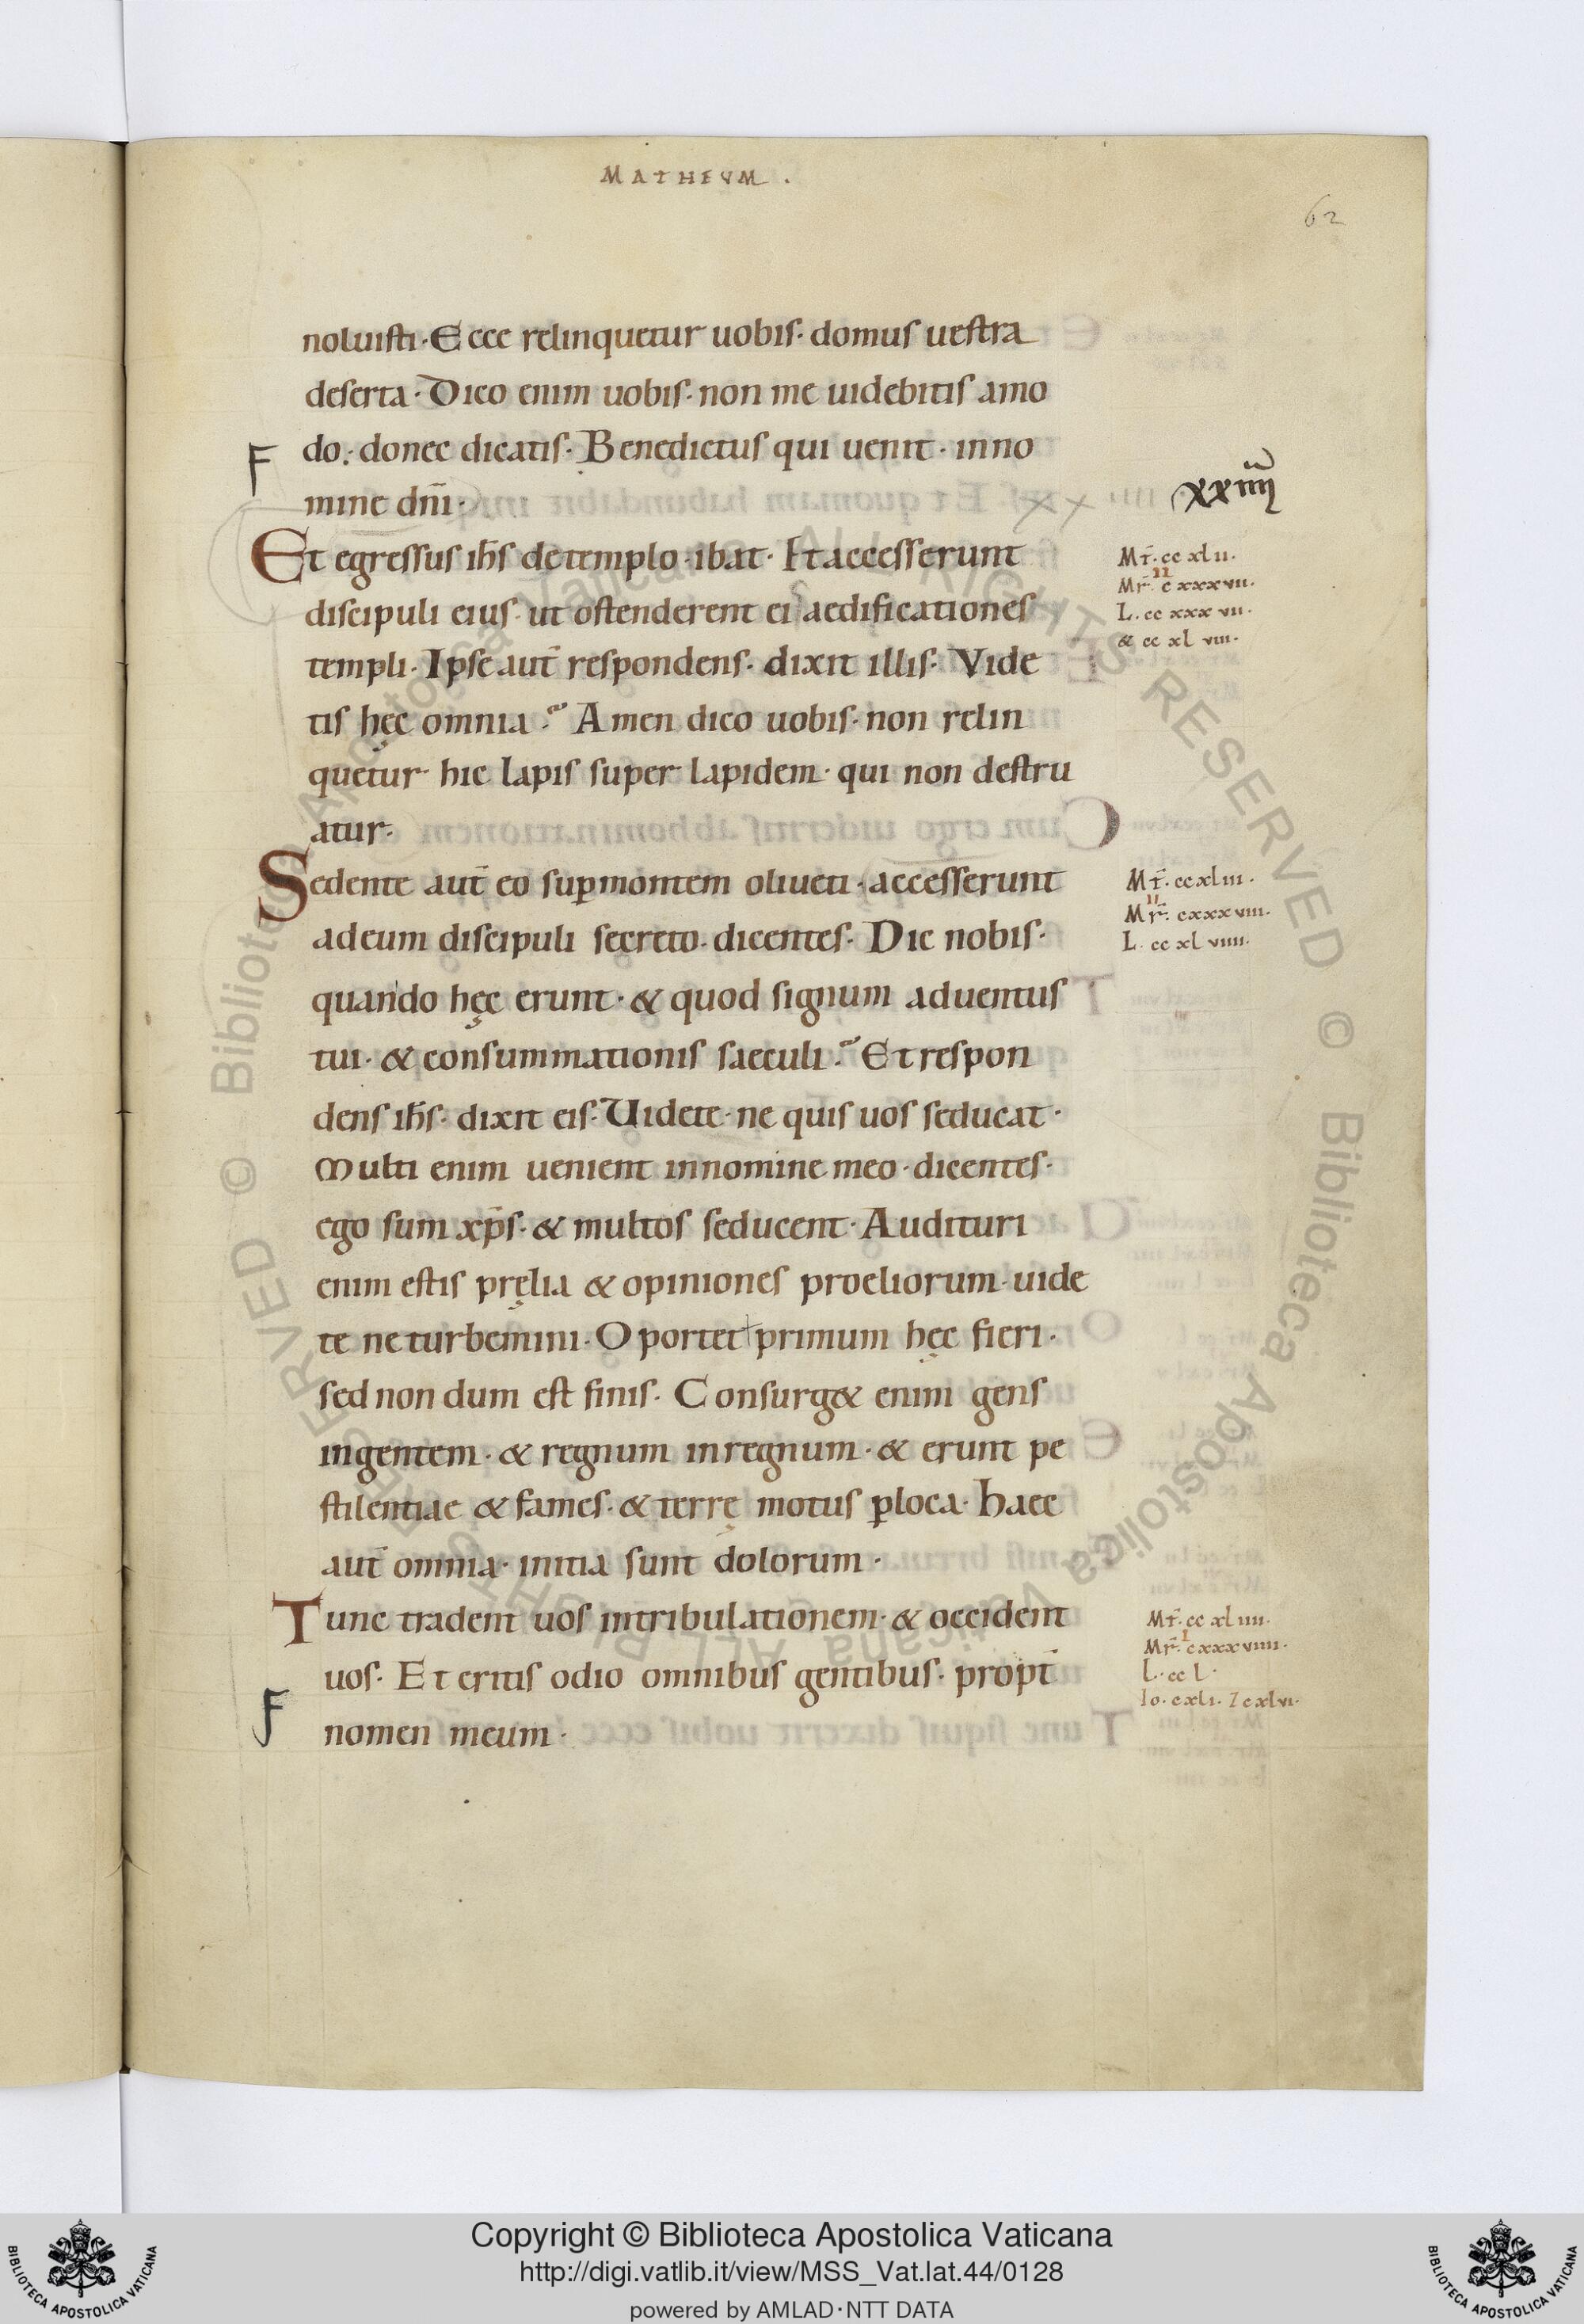 MATHEVM.
62
noluisti· Ecce relinquetur uobis· domus uestra
deserta· Dico enim uobis· non me uidebitis amo
F
do· donec dicatis· Benedictus qui uenit· in no
mine dn̄i·
xxiiii
Et egressus ih̄s de templo· ibat· Et accesserunt
Mt̄· cc xlii·
discipuli eius· ut ostenderent ei aedificationes
II
Mr̄· cxxxvii·
L· cc xxxvii·
& cc xl viii·
templi· Ipse aut̄ respondens· dixit illis· Vide
tis hęc omnia? Amen dico uobis· non relin
quetur hic lapis super lapidem· qui non destru
atur·
Sedente aut̄ eo suꝑ montem oliueti· accesserunt
Mt̄· cc xliii·
ad eum discipuli secreto· dicentes· Dic nobis·
II
Mr̄· cxxxviii·
L· cc xl viiii·
quando hęc erunt· & quod signum aduentus
tui· & consummationis saeculi? Et respon
dens ih̄s· dixit eis· Uidete· ne quis uos seducat·
Multi enim uenient in nomine meo· dicentes·
ego sum xp̄s· & multos seducent· Audituri
enim estis pręlia & opiniones proeliorum· uide
te ne turbemini· Oportet primum hęc fieri·
sed non dum est finis· Consurg& enim gens
in gentem· & regnum in regnum· & erunt pe
stilentiae & fames· & terrę motus ꝑ loca· haec
aut̄ omnia· initia sunt dolorum·
Tunc tradent uos in tribulationem· & occident
Mt̄· cc xl iiii·
I
Mr̄· cxxxviiii·
uos· Et eritis odio omnibus gentibus· propt̄
L· cc l·
Io· cxli· 7 cxlvi·
F
nomen meum·
© Biblioteca Apostolica Vaticana ALL RIGHTS RESERVED © Biblioteca Apostolica Vaticana ALL RIGHTS RESERVED
BIBLIOTECA APOSTOLICA VATICANA
Copyright © Biblioteca Apostolica Vaticana
http://digi.vatlib.it/view/MSS_Vat.lat.44/0128
powered by AMLAD·NTT DATA
BIBLIOTECA APOSTOLICA VATICANA